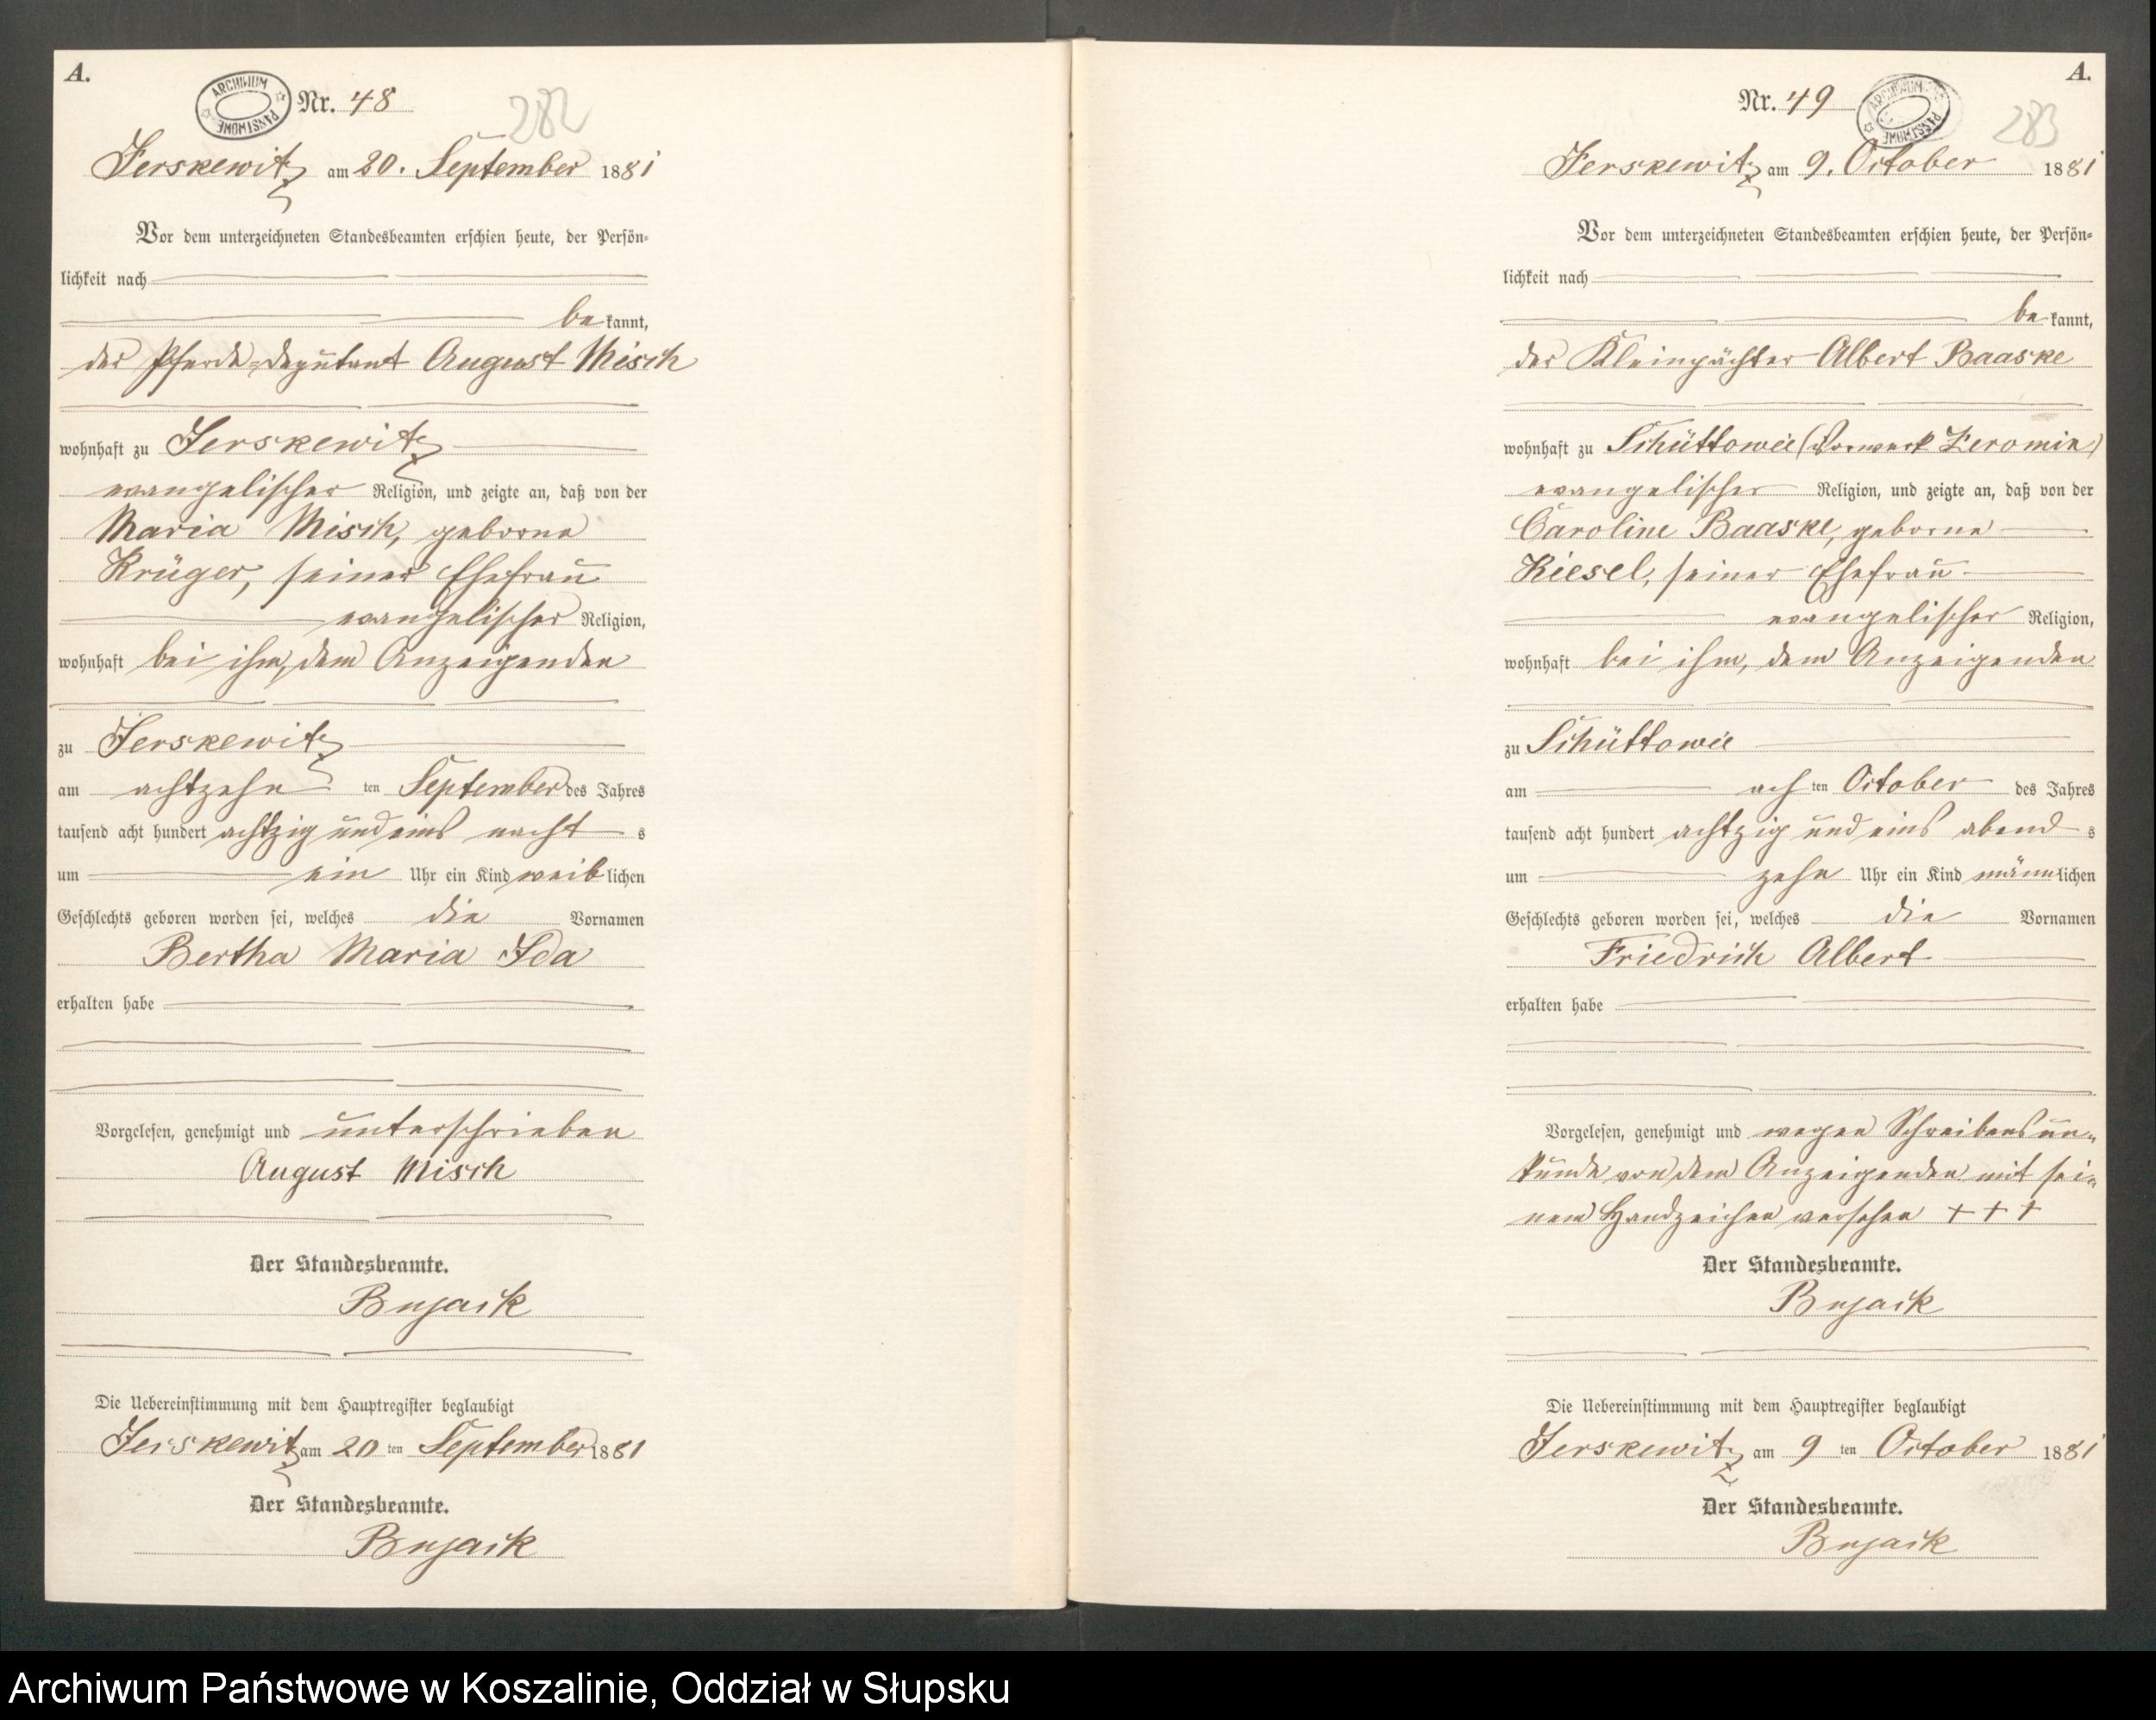 A.
ARCHIWUM PAŃSTWOWE
Nr. 48
282
Jerskewitz am 20. September 1881
Vor dem unterzeichneten Standesbeamten erschien heute, der Persön-
lichkeit nach
be kannt,
der Pferde-Deputant August Misch
wohnhaft zu Jerskewitz
evangelischer Religion, und zeigte an, daß von der
Maria Misch, geborne
Krüger, seiner Ehefrau
evangelischer Religion,
wohnhaft bei ihm, dem Anzeigenden
zu Jerskewitz
am achtzehn ten September des Jahres
tausend acht hundert achtzig und eins nacht s
um ein Uhr ein Kind weib lichen
Geschlechts geboren worden sei, welches die Vornamen
Bertha Maria Ida
erhalten habe
Vorgelesen, genehmigt und unterschrieben
August Misch
Der Standesbeamte.
Bujack
Die Uebereinstimmung mit dem Hauptregister beglaubigt
Jerskewitz am 20 ten September 1881
Der Standesbeamte.
Bujack
A.
Nr. 49
ARCHIWUM PAŃSTWOWE
283
Jerskewitz am 9. October 1881
Vor dem unterzeichneten Standesbeamten erschien heute, der Persön-
lichkeit nach
be kannt,
der Kleinpächter Albert Baaske
wohnhaft zu Schüttowie (Vorwerk Zeromin)
evangelischer Religion, und zeigte an, daß von der
Caroline Baaske, geborne
Kiesel, seiner Ehefrau
evangelischer Religion,
wohnhaft bei ihm, dem Anzeigenden
zu Schüttowie
am ach ten October des Jahres
tausend acht hundert achtzig und eins abend s
um zehn Uhr ein Kind männlichen
Geschlechts geboren worden sei, welches die Vornamen
Friedrich Albert
erhalten habe
Vorgelesen, genehmigt und wegen Schreibensun-
kunde von dem Anzeigenden mit sei-
nem Handzeichen versehen + + +
Der Standesbeamte.
Bujack
Die Uebereinstimmung mit dem Hauptregister beglaubigt
Jerskewitz am 9 ten October 1881
Der Standesbeamte.
Bujack
Archiwum Państwowe w Koszalinie, Oddział w Słupsku